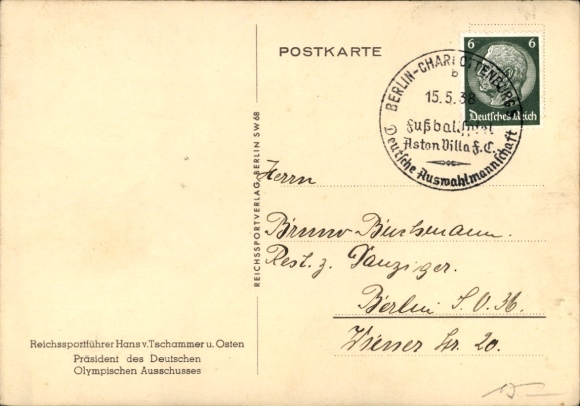 POSTKARTE
6 6
Deutsches Reich
BERLIN-CHARLOTTENBURG
b
15.5.38
Fußballspiel
Aston Villa F.C.
Deutsche Auswahlmannschaft
REICHSSPORTVERLAG, BERLIN SW 68
Herrn
Bruno
Rest. z. Danziger.
Berlin S.O. 36.
Wiener Str. 20.
Reichssportführer Hans v. Tschammer u. Osten
Präsident des Deutschen
Olympischen Ausschusses